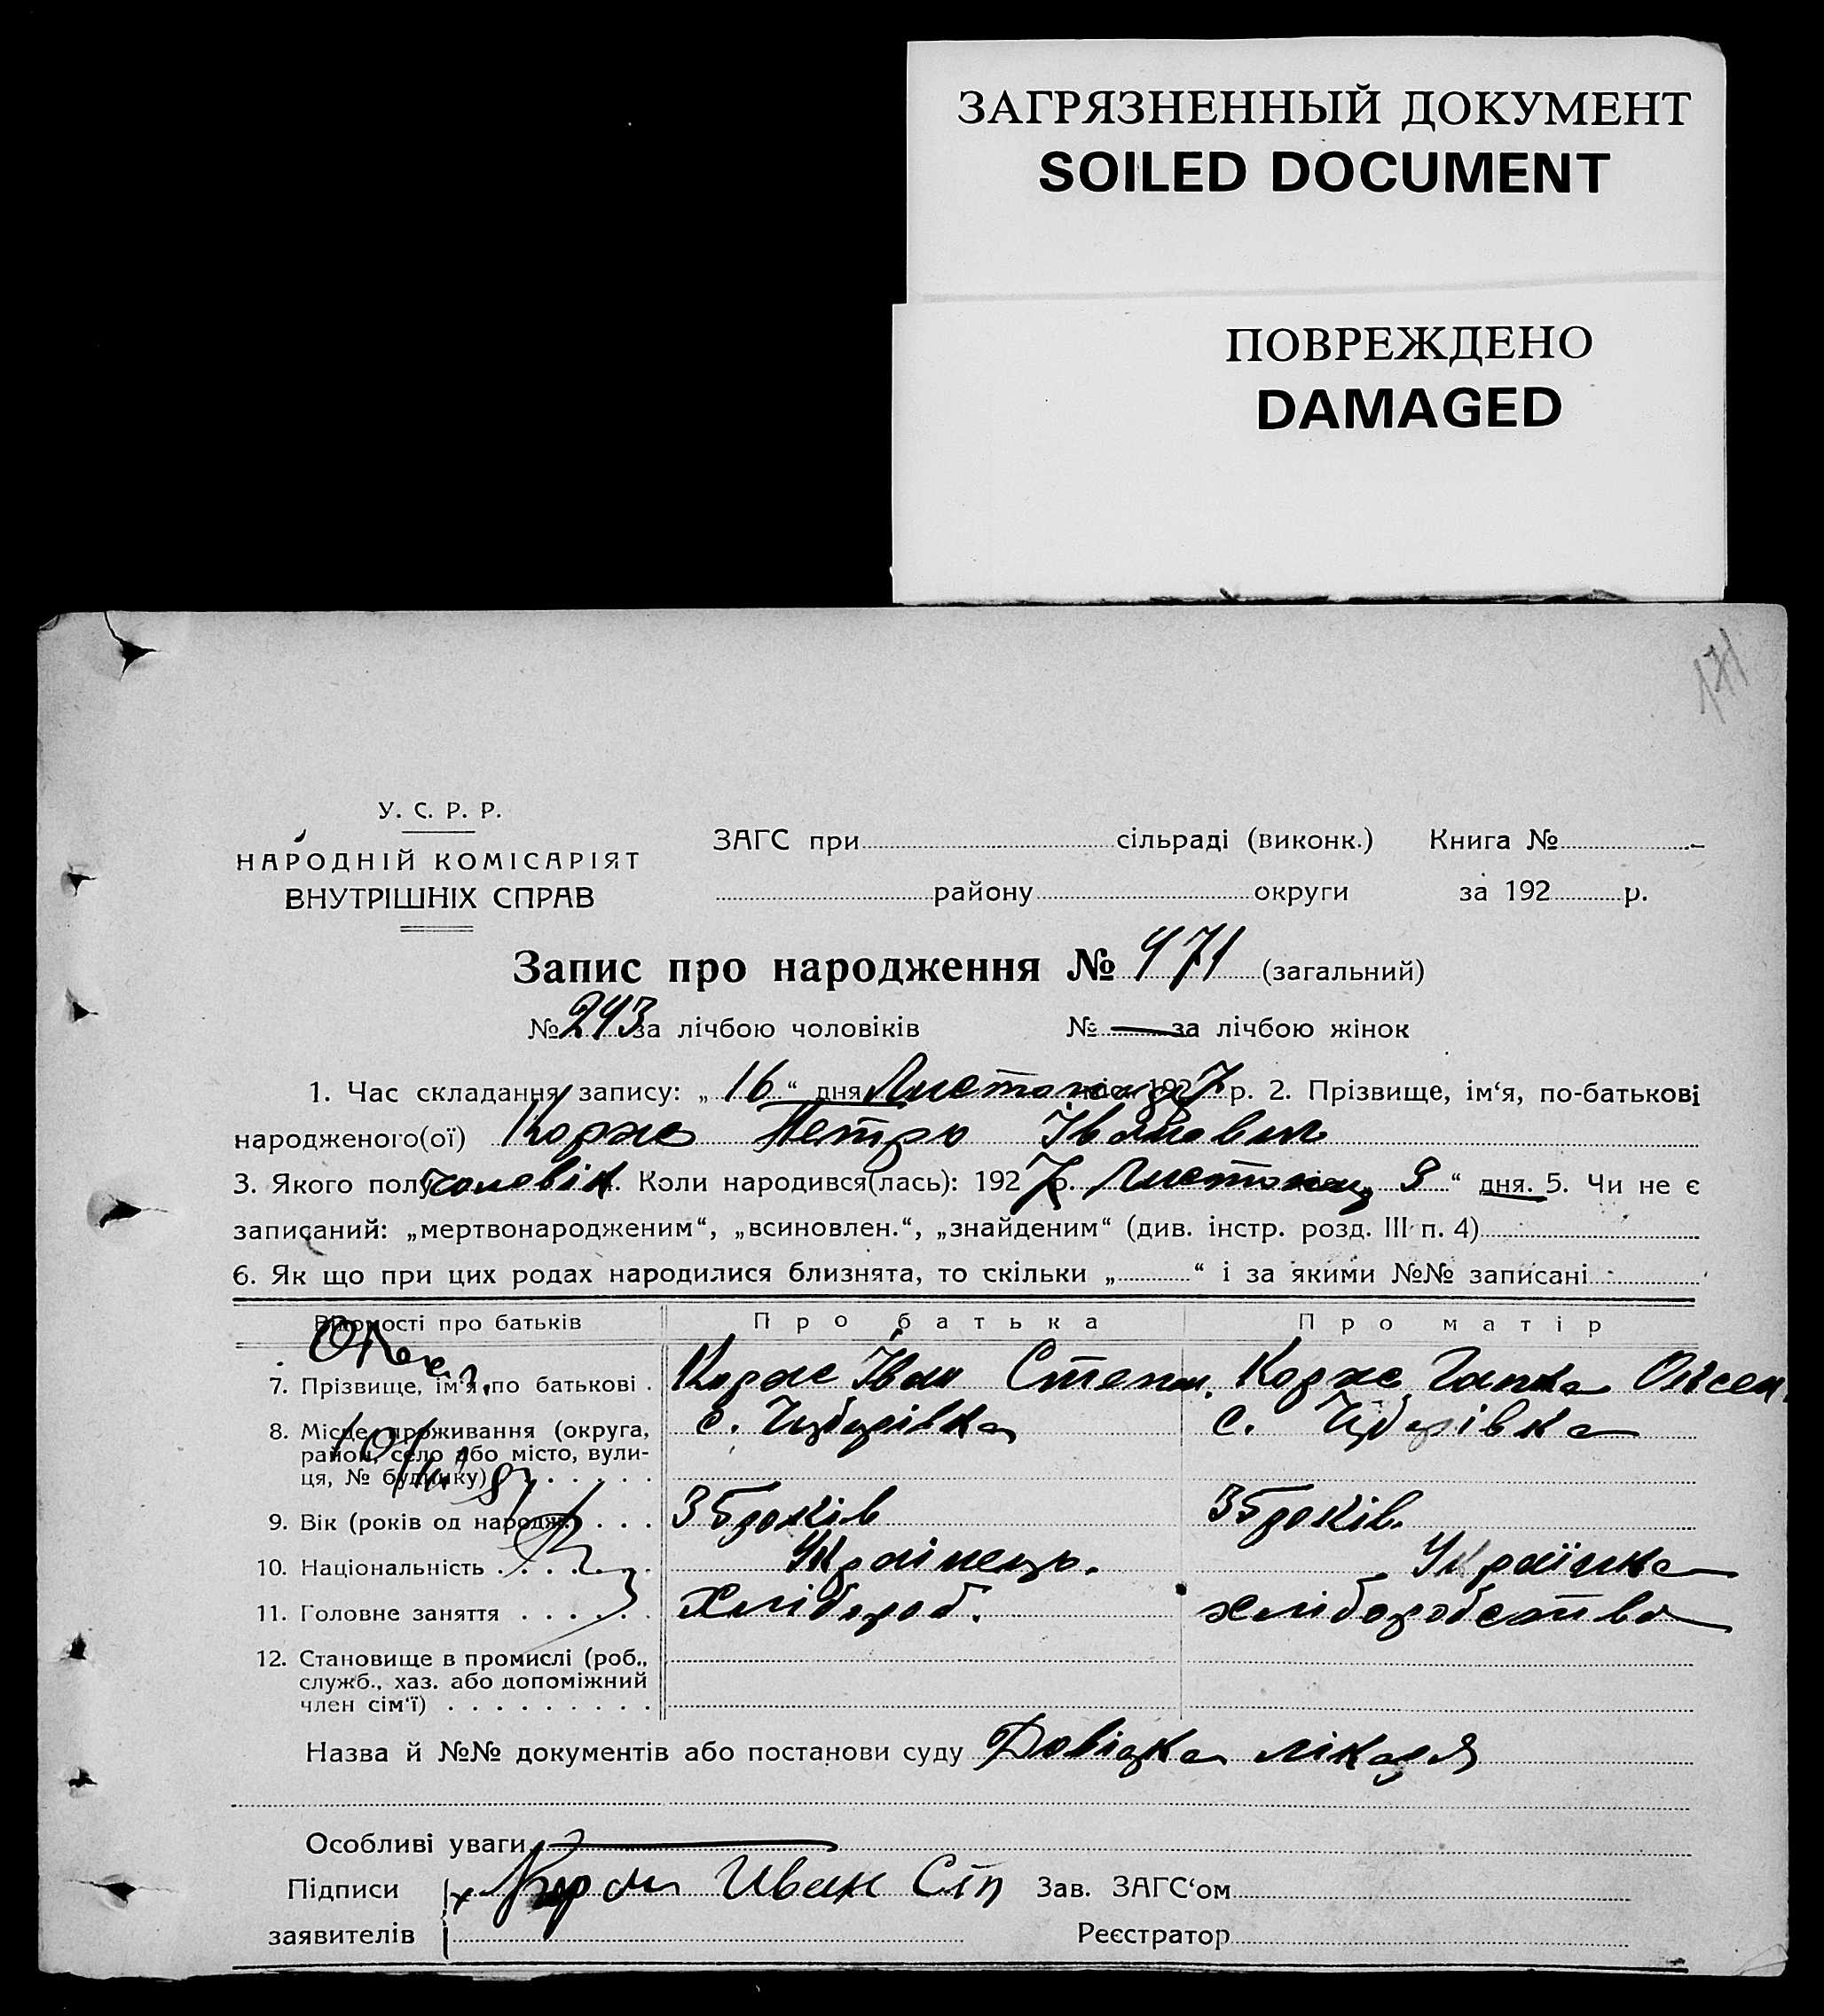 ЗАГРЯЗНЕННЫЙ ДОКУМЕНТ
SOILED DOCUMENT
ПОВРЕЖДЕНО
DAMAGED
171
У. С. Р. Р.
НАРОДНІЙ КОМІСАРІЯТ
ВНУТРІШНІХ СПРАВ
ЗАГС при сільраді (виконк.) Книга №
району округи за 192 р.
Запис про народження № 471 (загальний)
№ 243 за лічбою чоловіків № — за лічбою жінок
1. Час складання запису: „ 16 “ дня Листопада 1927 р. 2. Прізвище, ім‘я, по-батькові
народженого(ої) Корж Петро Іванович
3. Якого полу чоловік. Коли народився(лась): 1927 р. Листопад „ 9 “ дня. 5. Чи не є
записаний: „мертвонародженим“, „всиновлен.“, „знайденим“ (див. інстр. розд. III п. 4)
6. Як що при цих родах народилися близнята, то скільки „ “ і за якими №№ записані
Відомості про батьків Про батька Про матір
7. Прізвище, ім‘я, по батькові . Корж Іван Степан. Корж Гапка Олксен
8. Місце проживання (округа,
район, село або місто, вули-
ця, № будинку) с. Чубарівка с. Чубарівка
9. Вік (років од народж.) . . . 35 років 35 років.
10. Національність . . . . . . . Українець. Українка
11. Головне заняття . . . . . . Хлібороб. хліборобство
12. Становище в промислі (роб.,
служб., хаз. або допоміжний
член сім‘ї) . . . . . . . . .
Назва й №№ документів або постанови суду Довідка лікаря
Особливі уваги
Підписи х Корж Иван Сті Зав. ЗАГС‘ом
заявителів Реєстратор